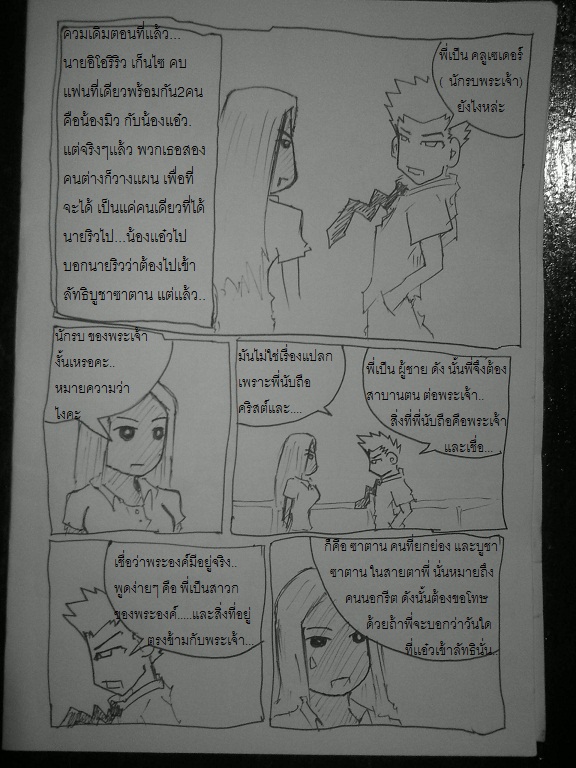 ควมเดิมตอนที่แล้ว...
นายอิโอริริว เก็นไซ คบ
แฟนที่เดียวพร้อมกัน2คน
คือน้องมิว กับน้องแอ๋ว.
แต่จริงๆแล้ว พวกเธอสอง
คนต่างก็วางแผน เพื่อที่
จะได้ เป็นแค่คนเดียวที่ได้
นายริวไป...น้องแอ๋วไป
บอกนายริวว่าต้องไปเข้า
ลัทธิบูชาซาตาน แต่แล้ว..
พี่เป็น คลูเซเดอร์
( นักรบพระเจ้า)
ยังไงหล่ะ
นักรบ ของพระเจ้า
งั้นเหรอคะ..
หมายความว่า
ไงคะ
มันไม่ใช่เรื่องแปลก
เพราะพี่นับถือ
คริสต์และ....
พี่เป็น ผู้ชาย ดัง นั้นพี่จึงต้อง
สาบานตน ต่อพระเจ้า..
สิ่งที่พี่นับถือคือพระเจ้า
และเชื่อ...
เชื่อว่าพระองค์มีอยู่จริง..
พูดง่ายๆ คือ พี่เป็นสาวก
ของพระองค์.....และสิ่งที่อยู่
ตรงข้ามกับพระเจ้า...
ก็คือ ซาตาน คนที่ยกย่อง และบูชา
ซาตาน ในสายตาพี่ นั่นหมายถึง
คนนอกรีต ดังนั้นต้องขอโทษ
ด้วยถ้าพี่จะบอกว่าวันใด
ที่แอ๋วเข้าลัทธินั่น..